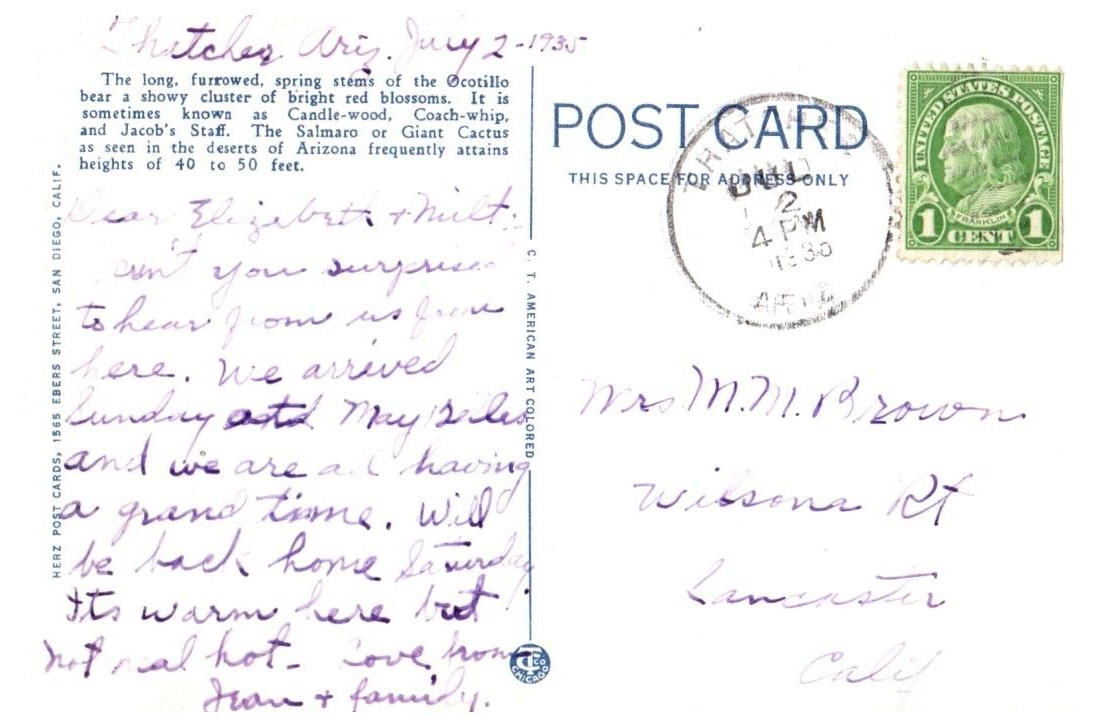 Thatcher Ariz. July 2-1935
The long, furrowed, spring stems of the Ocotillo
bear a showy cluster of bright red blossoms. It is
sometimes known as Candle-wood, Coach-whip,
and Jacob's Staff. The Salmaro or Giant Cactus
as seen in the deserts of Arizona frequently attains
heights of 40 to 50 feet.
Dear Elizabeth + Milt:
you surprised
to hear from us from
here. We arrived
Sunday May
and we are all having
a grand time. Will
be back home Saturday.
Its warm here but
not real hot - Love from
Jean + family.
HERZ POST CARDS, 1565 EBERS STREET, SAN DIEGO, CALIF.
C. T. AMERICAN ART COLORED
CTCO
CHICAGO
POST CARD
THIS SPACE FOR ADDRESS ONLY
JUL
2
4 PM
ARIZ
UNITED STATES POSTAGE
FRANKLIN
1 CENT 1
Mrs M.M. Brown
Wilsona Rt
Lancaster
Calif